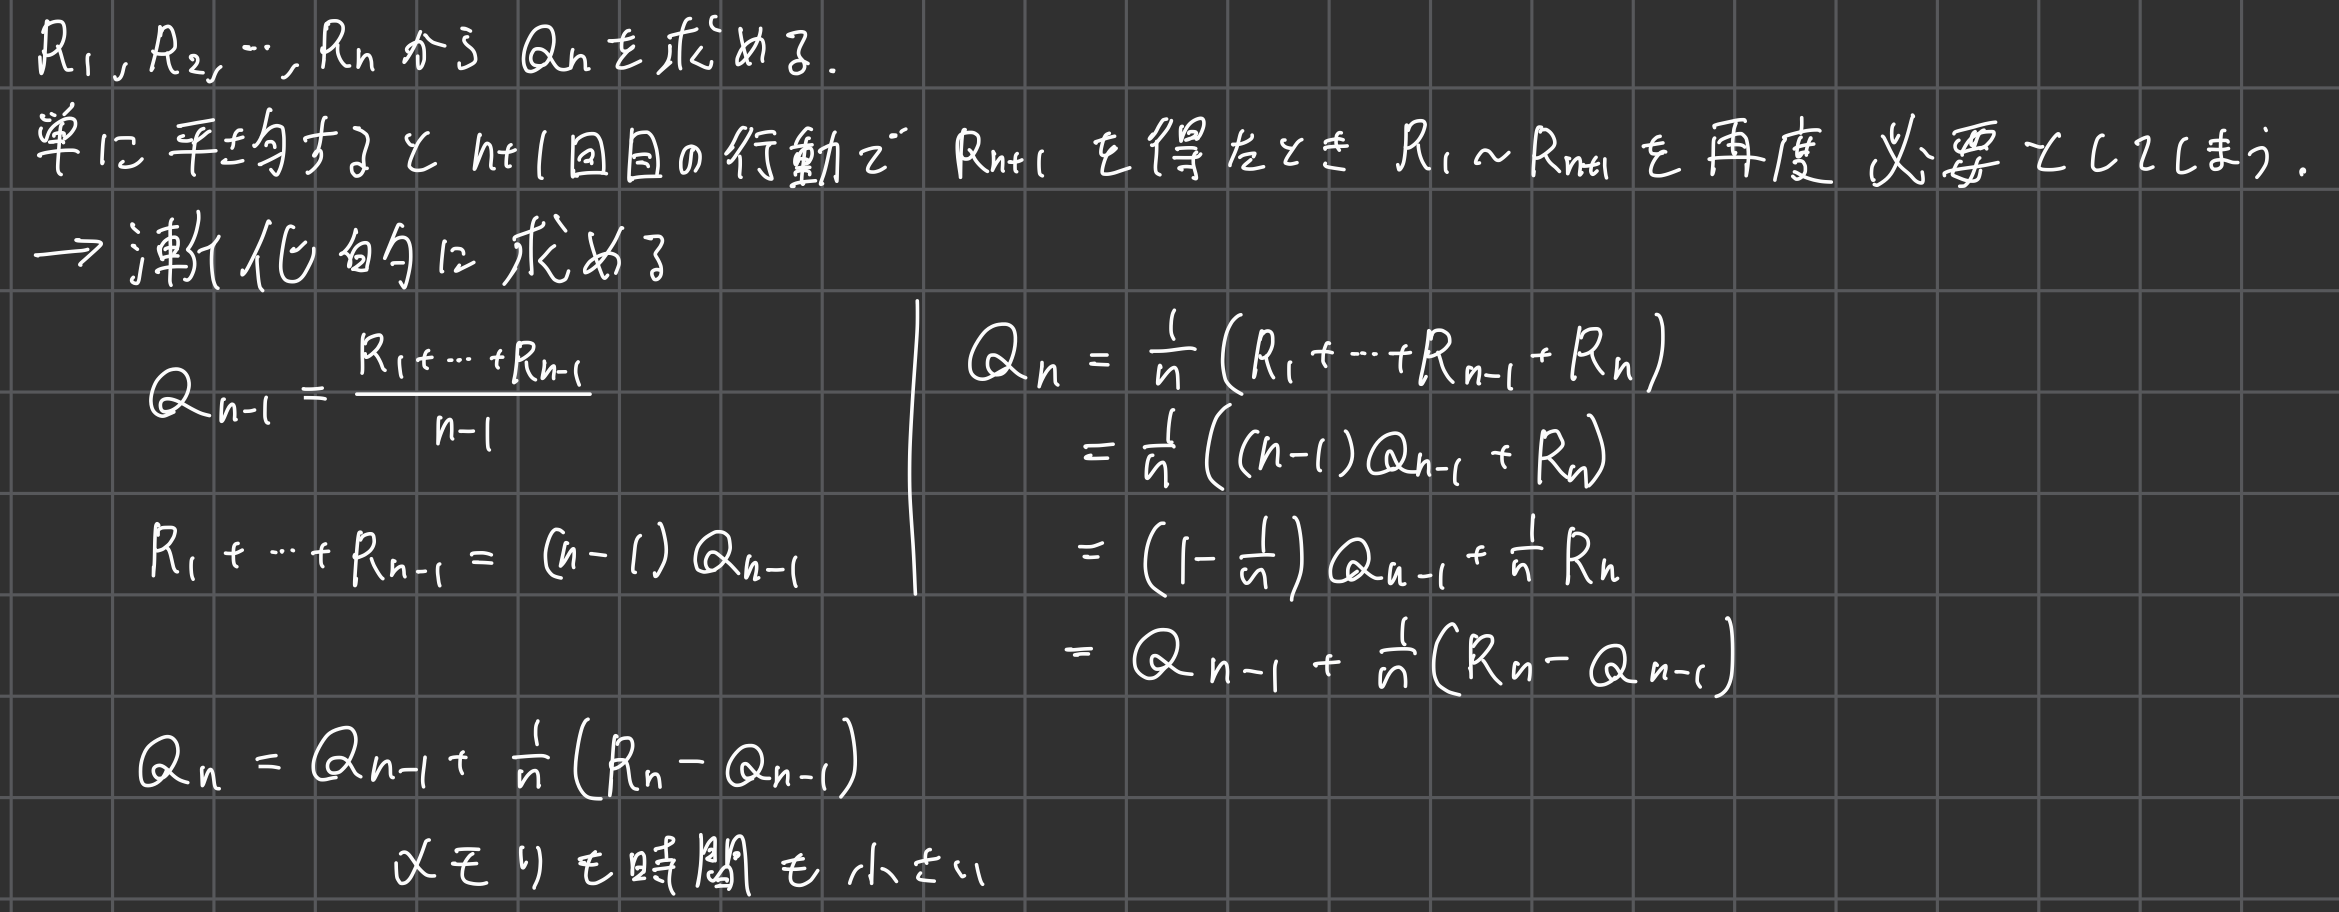 R₁, R₂, …, Rₙ から Qₙ を求める.
単に平均すると n+1回目の行動で Rₙ₊₁ を得たとき R₁ ~ Rₙ₊₁ を再度必要としてしまう.
→ 漸化的に求める
Qₙ₋₁ = (R₁ + … + Rₙ₋₁) / (n-1)
R₁ + … + Rₙ₋₁ = (n-1) Qₙ₋₁
Qₙ = 1/n (R₁ + … + Rₙ₋₁ + Rₙ)
= 1/n ((n-1) Qₙ₋₁ + Rₙ)
= (1 - 1/n) Qₙ₋₁ + 1/n Rₙ
= Qₙ₋₁ + 1/n (Rₙ - Qₙ₋₁)
Qₙ = Qₙ₋₁ + 1/n (Rₙ - Qₙ₋₁)
メモリも時間も小さい